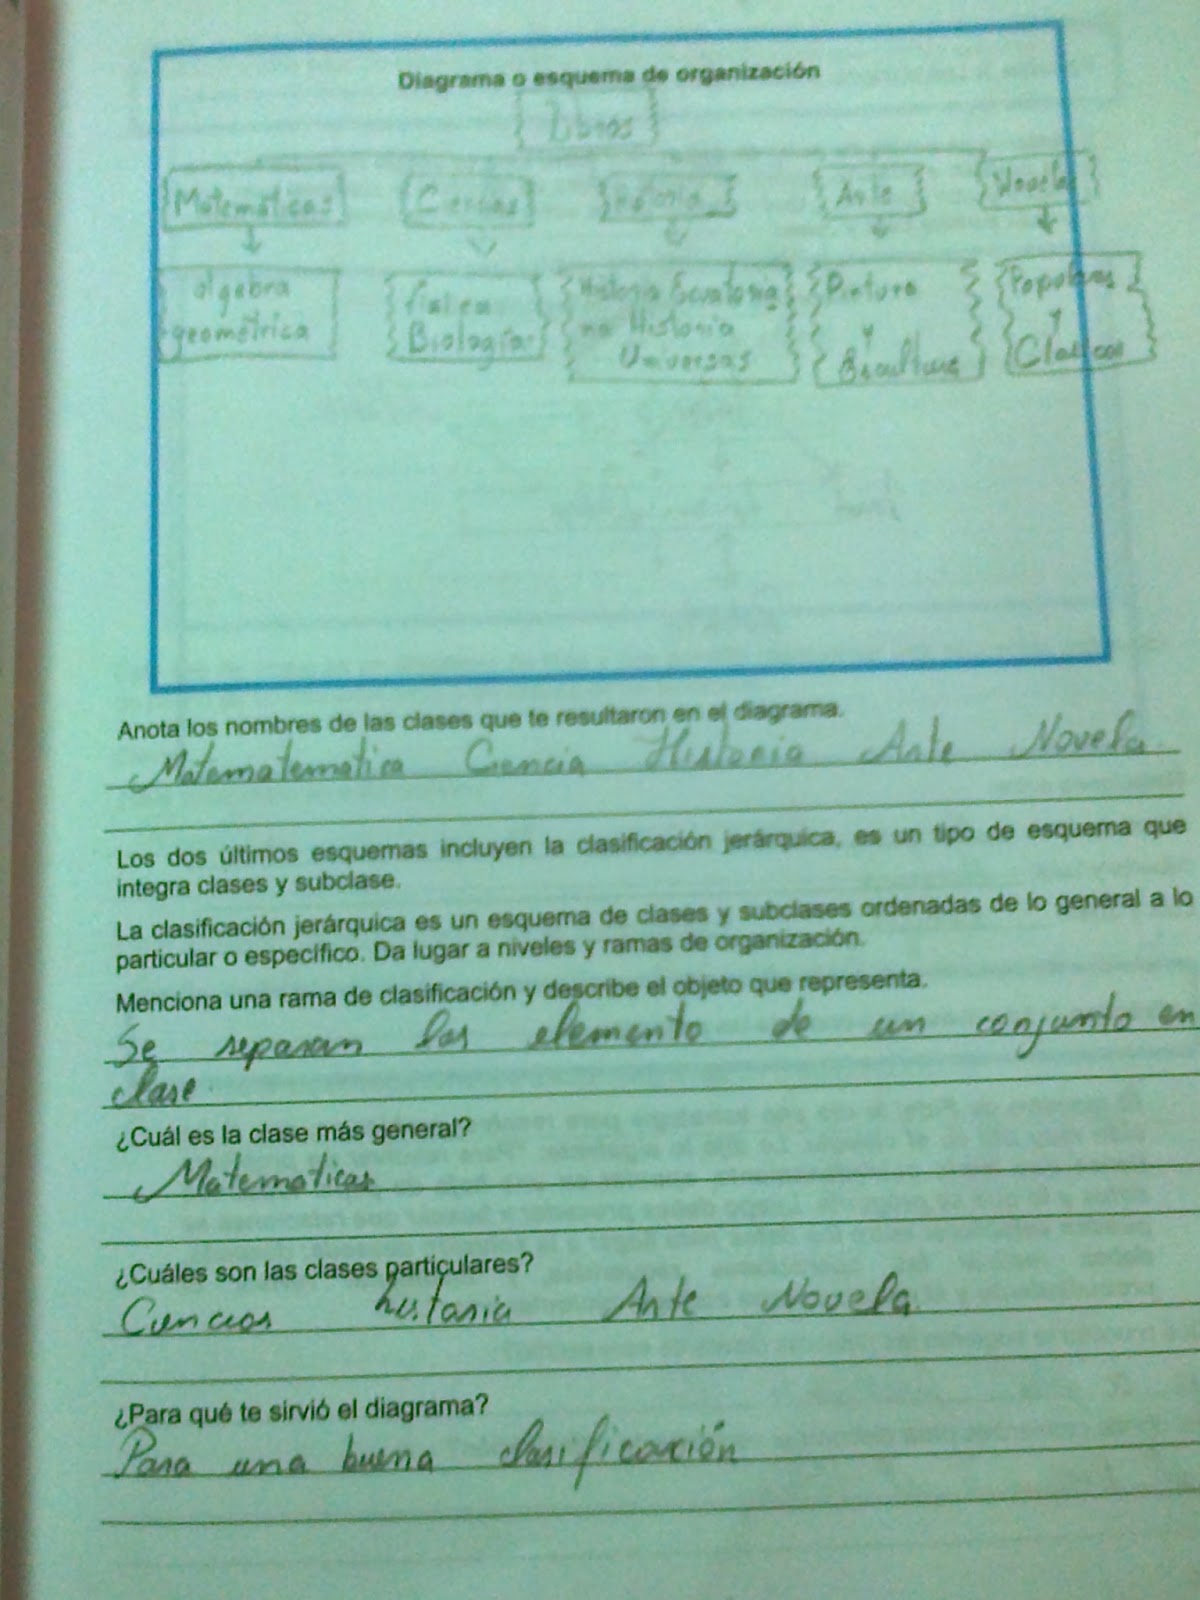 Diagrama o esquema de organización
Libros
Matemáticas Ciencias Historia Arte Novela
algebra
geometrica
física
Biología
Historia Ecuatoria
na Historia
Universas
Pintura
y
Escultura
Populares
y
Clasicos
Anota los nombres de las clases que te resultaron en el diagrama.
Matematematica Ciencia Historia Arte Novela
Los dos últimos esquemas incluyen la clasificación jerárquica, es un tipo de esquema que
integra clases y subclase.
La clasificación jerárquica es un esquema de clases y subclases ordenadas de lo general a lo
particular o específico. Da lugar a niveles y ramas de organización.
Menciona una rama de clasificación y describe el objeto que representa.
Se separan los elemento de un conjunto en
clase
¿Cuál es la clase más general?
Matematicas
¿Cuáles son las clases particulares?
Ciencias historia Arte Novela
¿Para qué te sirvió el diagrama?
Para una buena clasificación